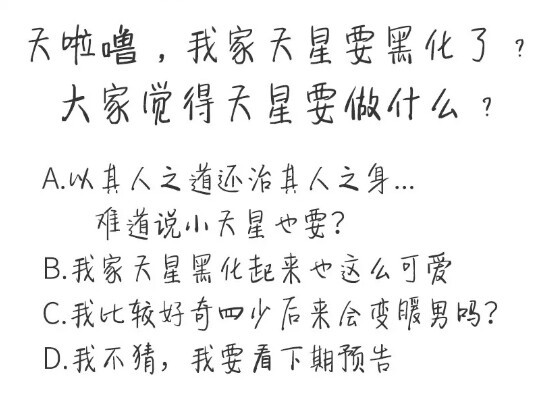 天啦噜，我家天星要黑化了？
大家觉得天星要做什么？
A.以其人之道还治其人之身...
难道说小天星也要？
B.我家天星黑化起来也这么可爱
C.我比较好奇四少后来会变暖男吗？
D.我不猜，我要看下期预告